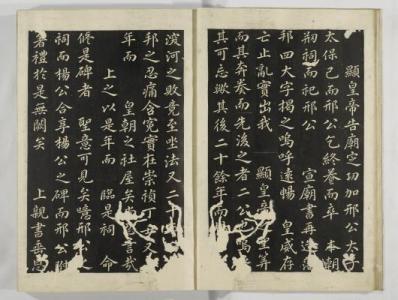 顯皇帝告廟定功加邢公太子
太保已而邢公乞終養而卒 本朝
剏祠而祀邢公 宣廟書再造
邦四大字揭之嗚呼遠暢 皇威存
亡止亂實出我 顯皇
而其奔奏而先後之者二公
其可忘歟其後二十餘年而
渾河之敗竟至坐法又二
邦之忍痛含冤實在崇禎丁丑又
年而 皇朝之社屋矣
上之以是年而 臨是祠 命
修是碑者 聖意可見矣噫邢公
祠而楊公合享楊公之碑而邢公附
著禮於是無闕矣 上親書垂